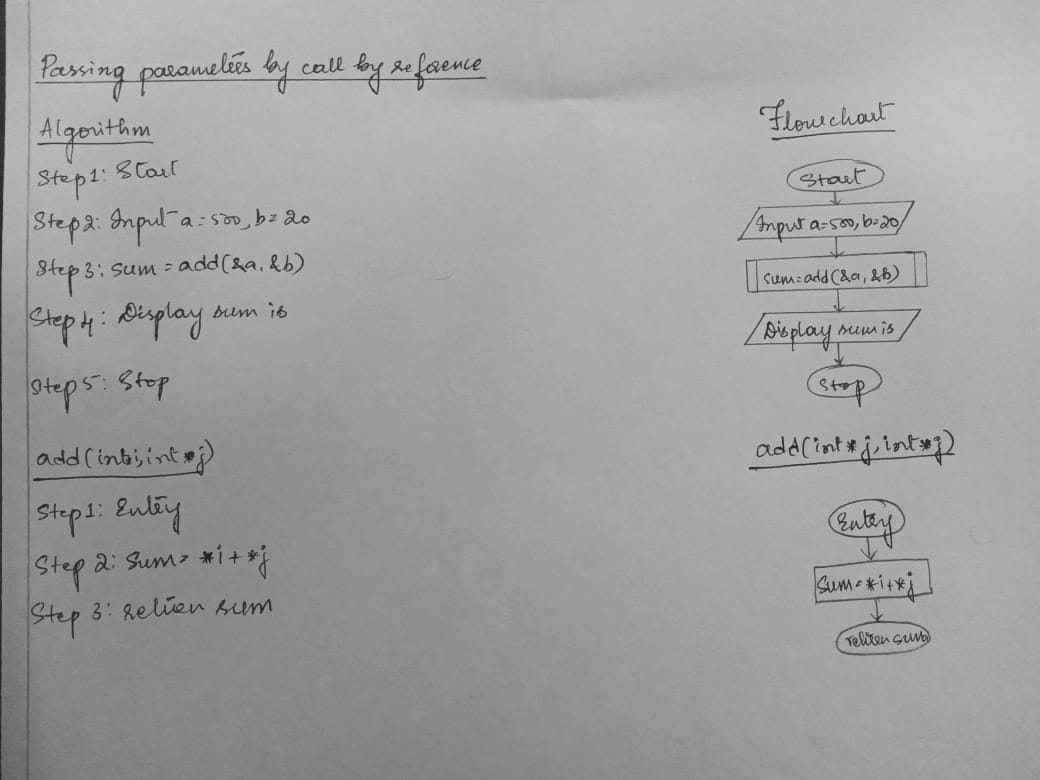 Passing parameters by call by reference
Algorithm
Step 1: Start
Step 2: Input a=500, b=20
Step 3: sum = add(&a, &b)
Step 4: Display sum is
Step 5: Stop
add(int*i, int *j)
Step 1: Entry
Step 2: Sum= *i+*j
Step 3: return sum
Flowchart
Start
Input a=500, b=20
sum=add(&a, &b)
Display sum is
Stop
add(int* j, int*j)
Entry
Sum=*i+*j
return sum